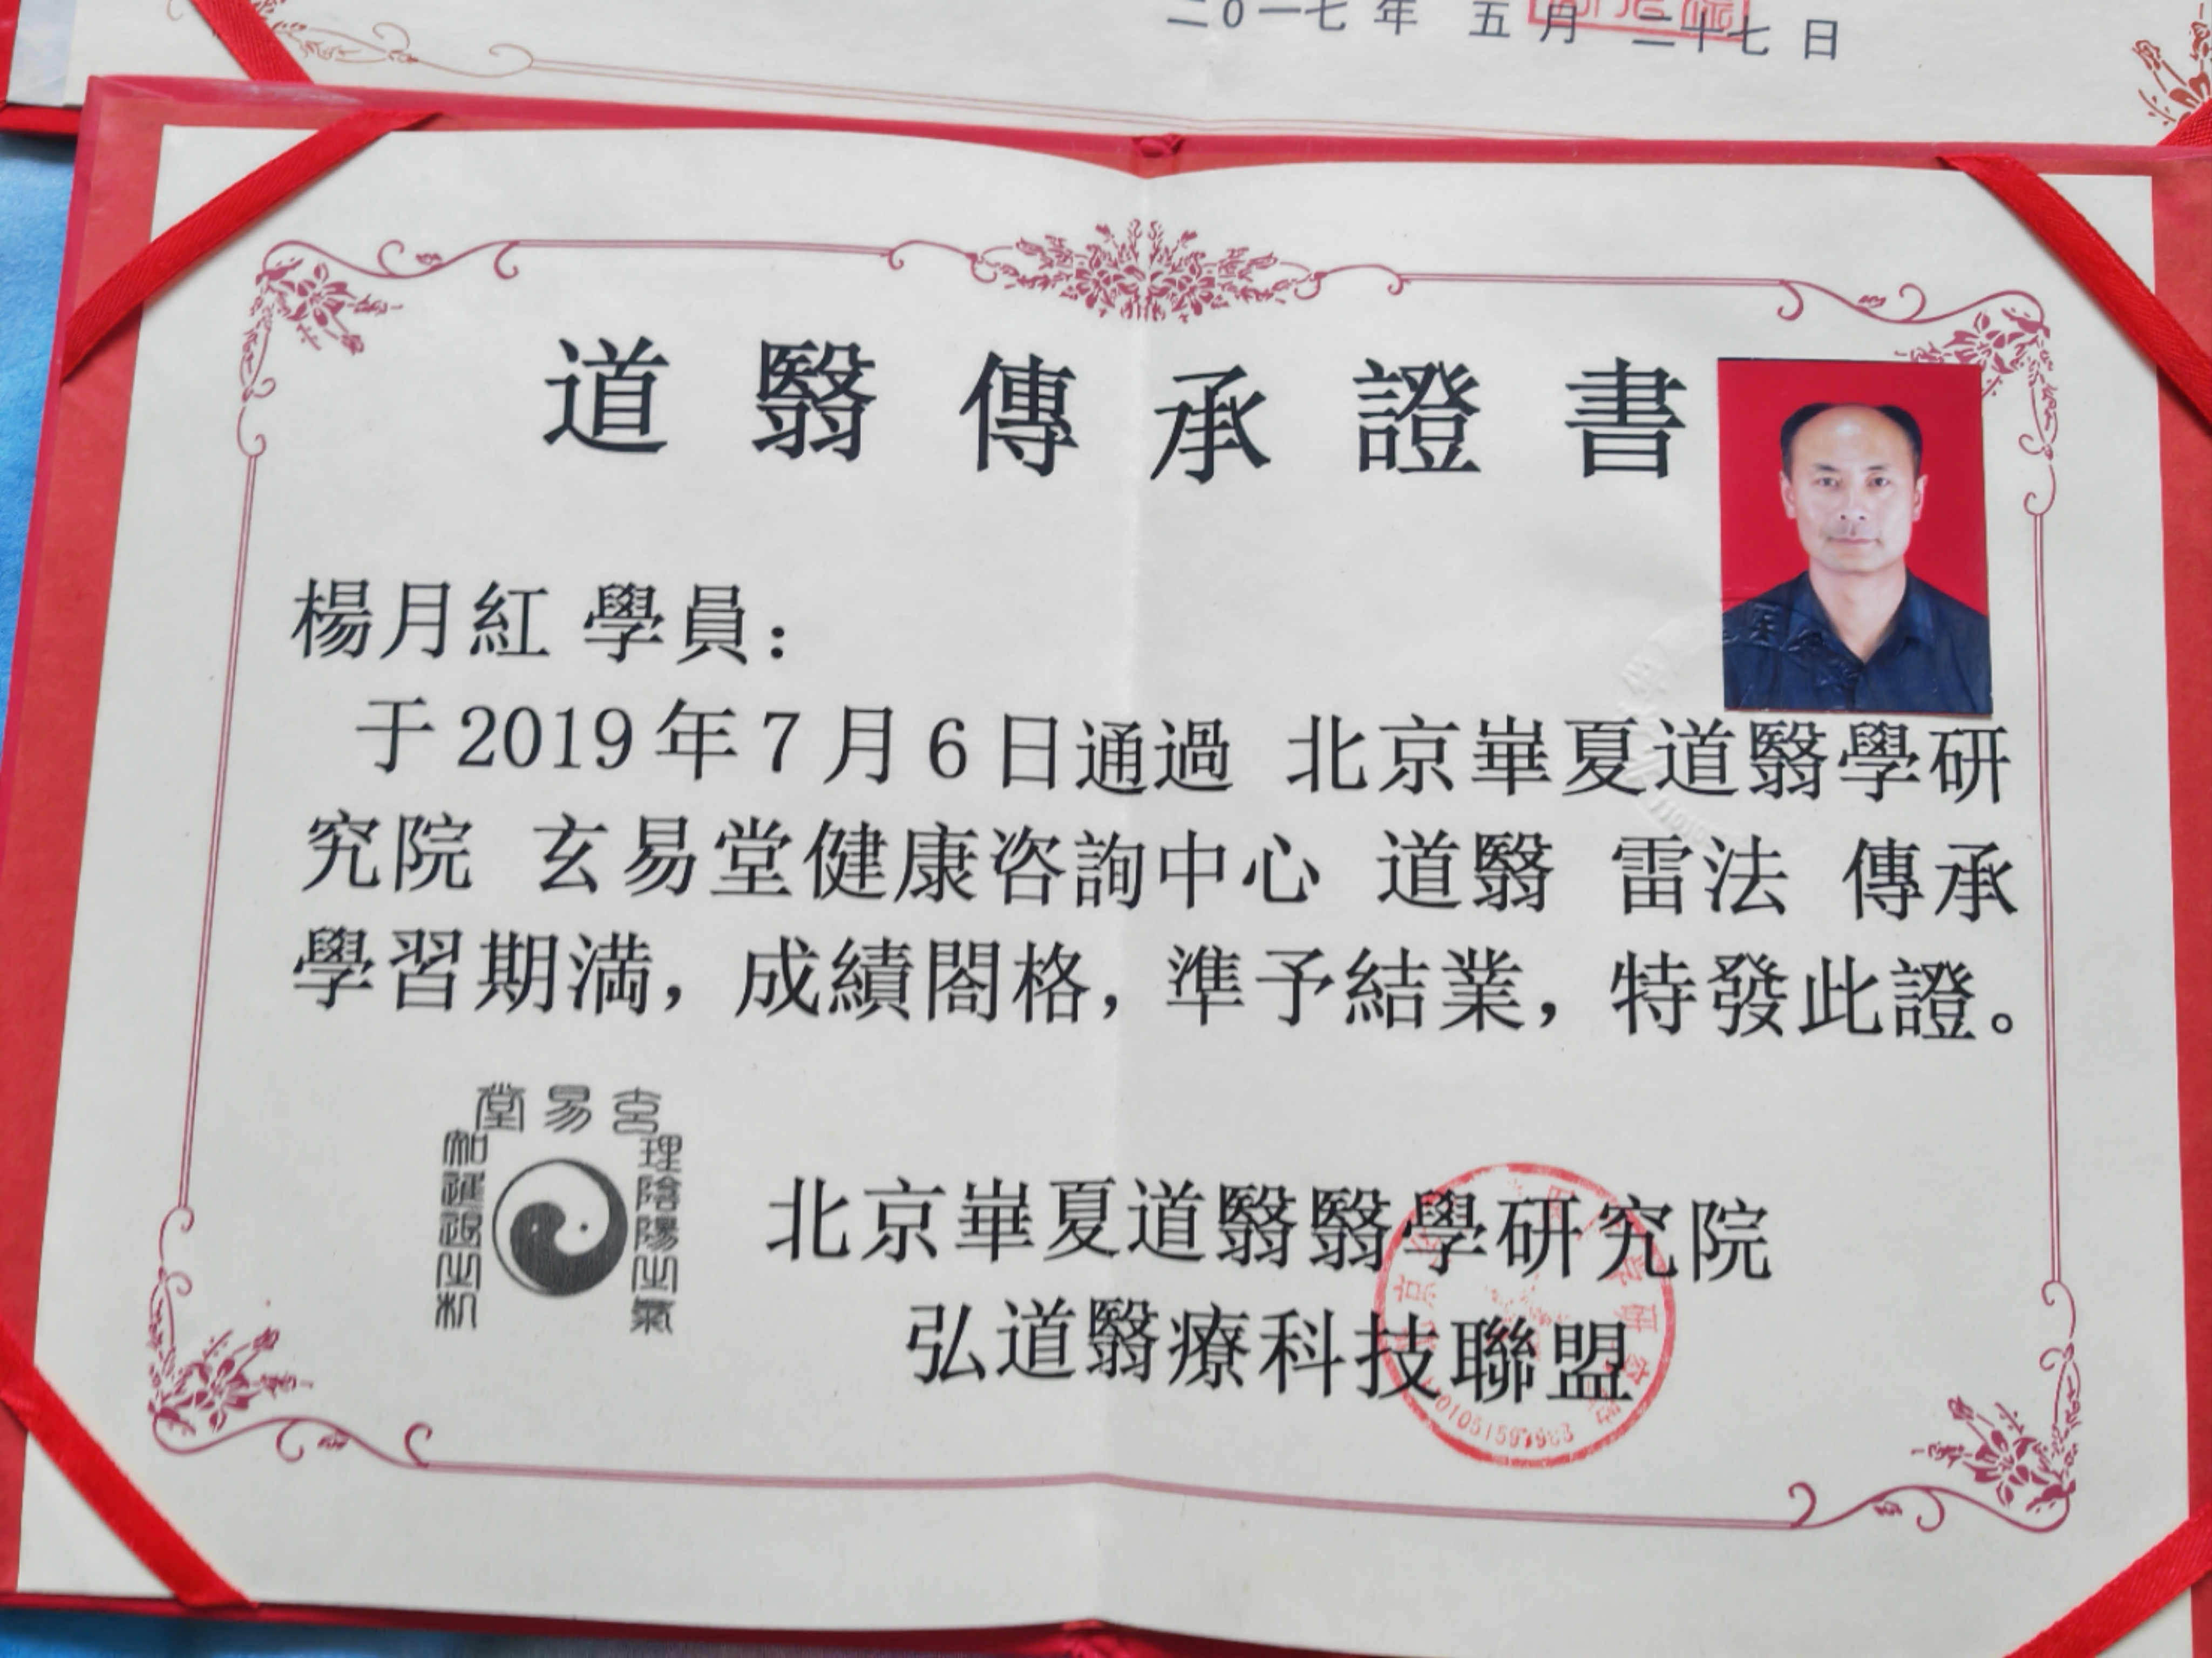 二0一七 年 五 月 二十七 日
道 毉 傳 承 證 書
楊月紅 學員：
于2019年7月6日通過 北京崋夏道毉學研
究院 玄易堂健康咨詢中心 道毉 雷法 傳承
學習期満，成績閤格，準予結業，特發此證。
堂易玄
理陰陽之氣
北京崋夏道毉毉學研究院
弘道毉療科技聯盟